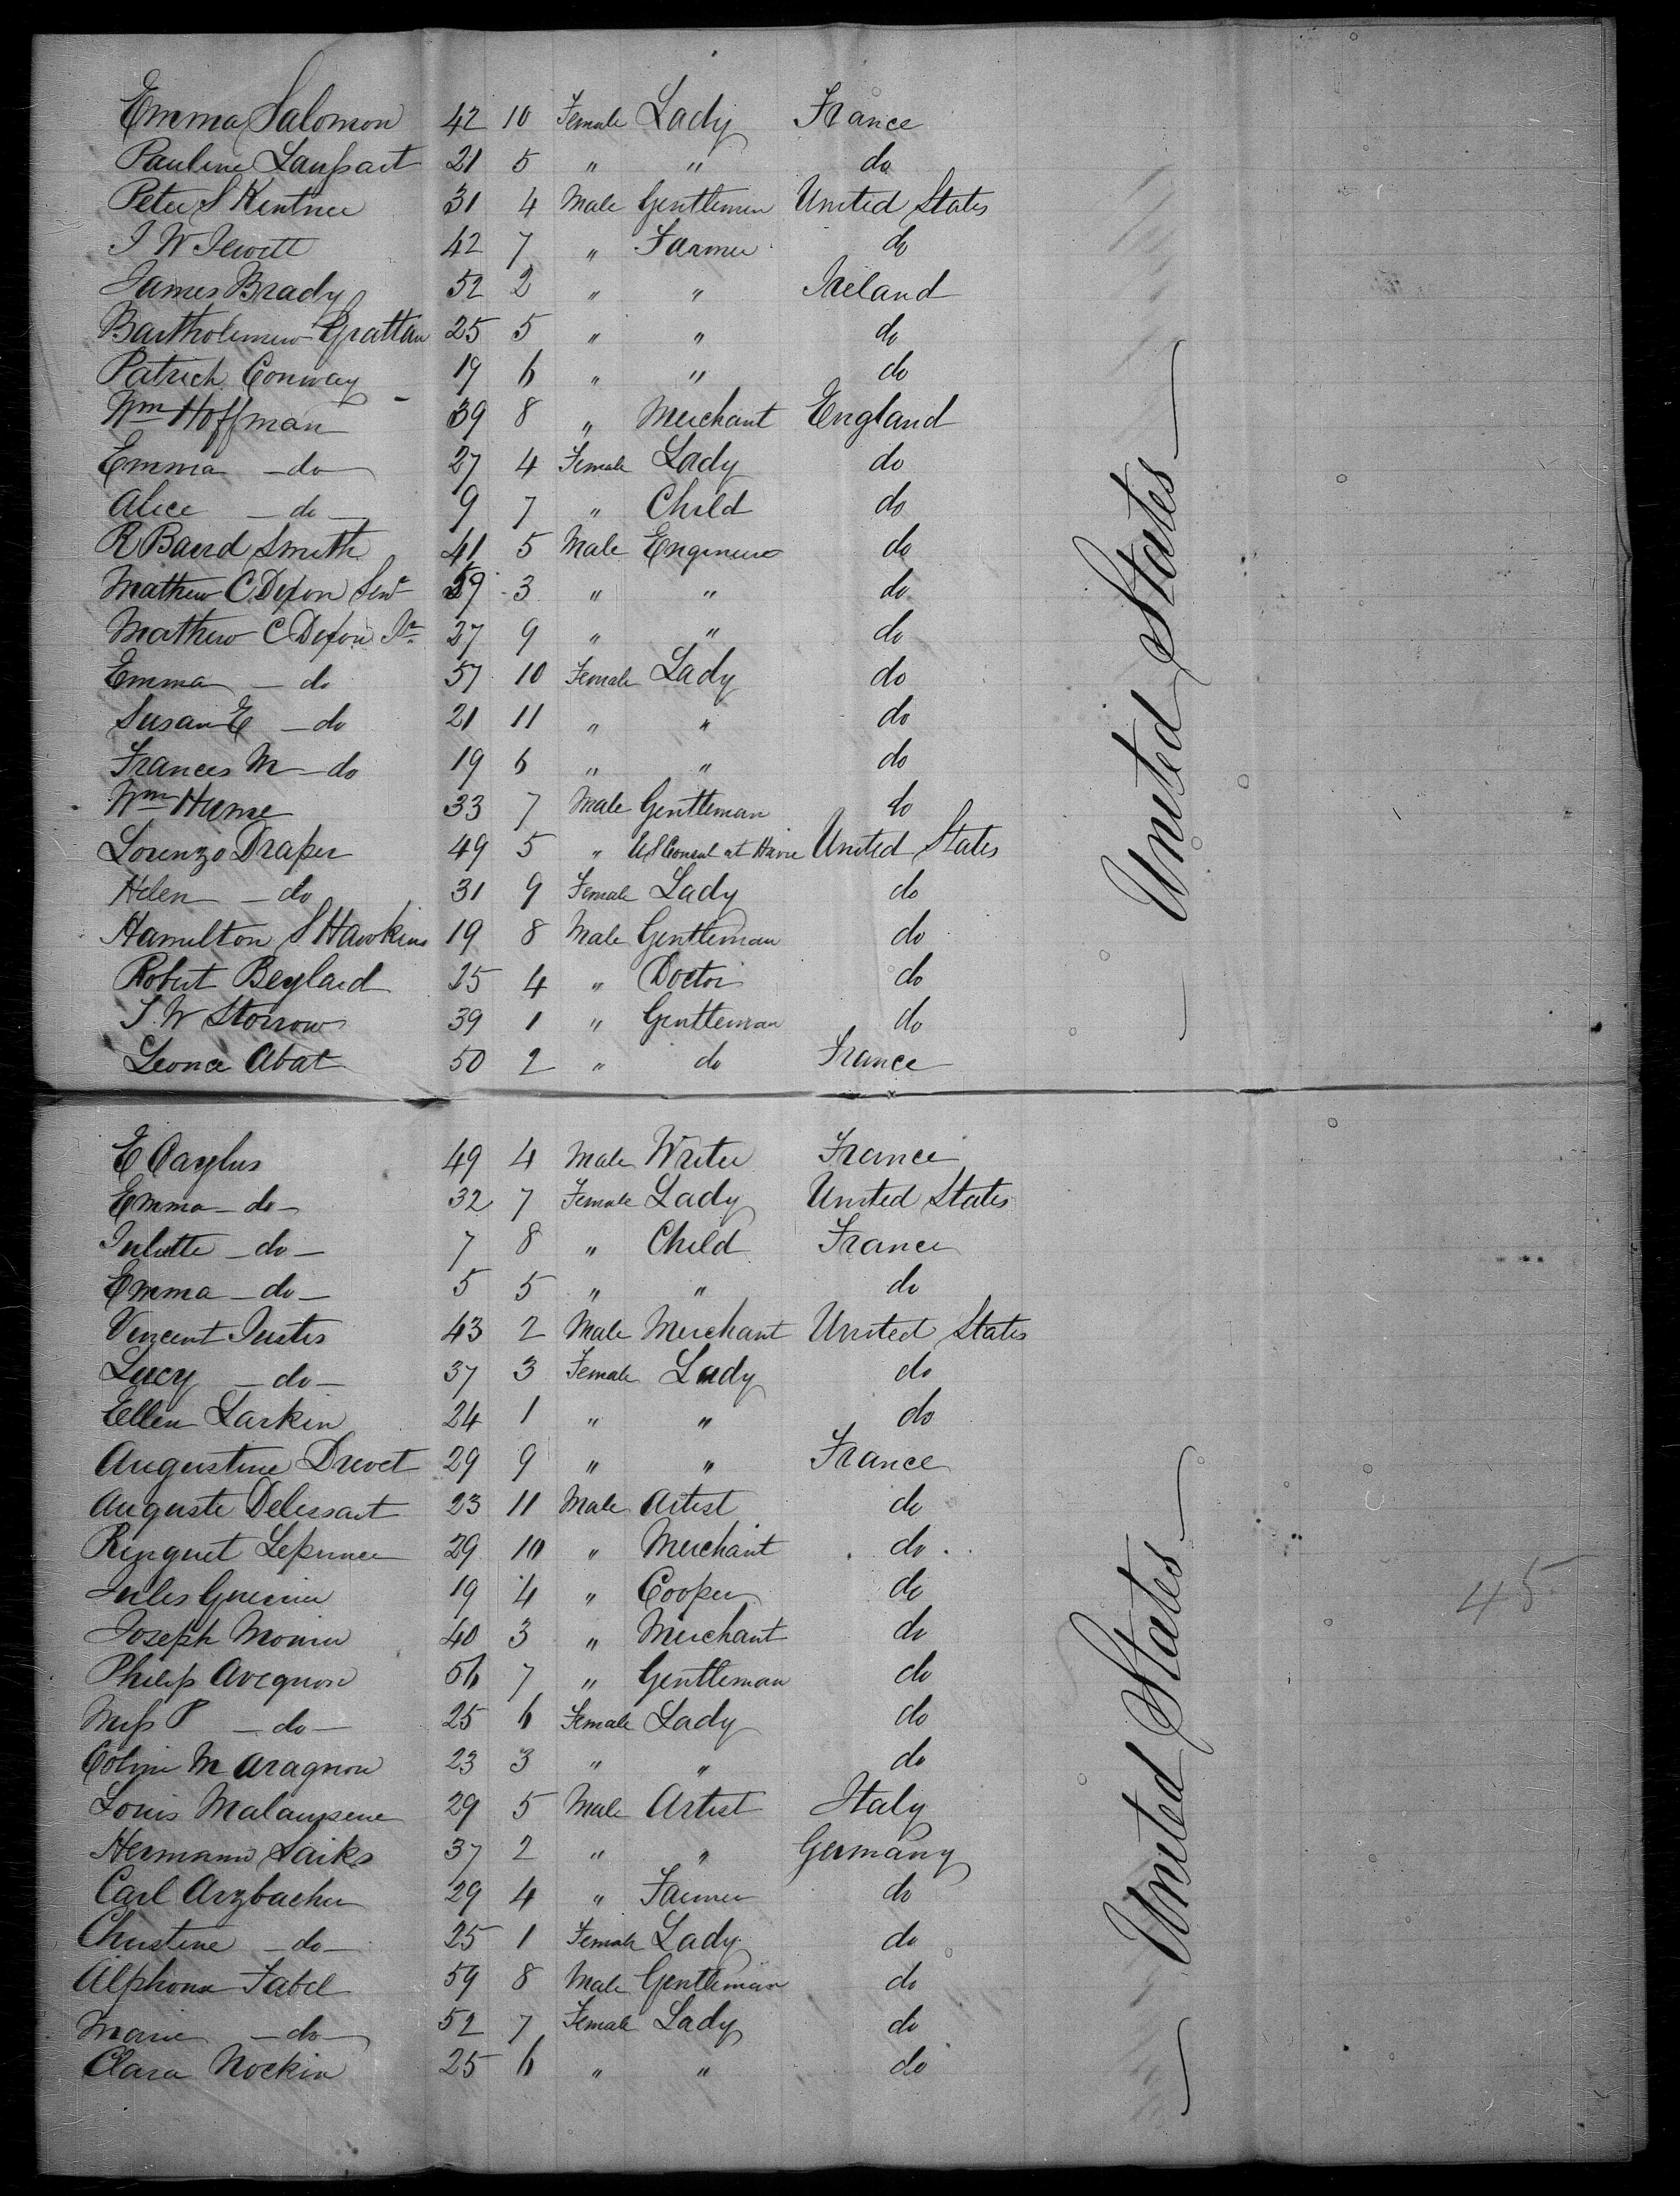 Emma Salomon 42 10 Female Lady France
Pauline Lanſsart 21 5 " " do
Peter S Kentner 31 4 Male Gentlemen United States
J W Jewett 42 7 " Farmer do
James Brady 52 2 " " Ireland
Bartholemew Grattan 25 5 " " do
Patrick Conway 19 6 " " do
Wm Hoffman 39 8 " Merchant England
Emma - do - 27 4 Female Lady do
Alice - do - 9 7 " Child do
R Baird Smith 41 5 Male Engineer do
Mathew C. Dixon Senr 59 3 " " do
Mathew C Dixon Jr. 27 9 " " do
Emma - do 57 10 Female Lady do
Susan E - do 21 11 " " do
Frances M - do 19 6 " " do
Wm Hume 33 7 Male Gentleman do
Lorenzo Draper 49 5 " US Consul at Havre United States
Helen - do 31 9 Female Lady do
Hamilton S Hawkins 19 8 Male Gentleman do
Robert Beylard 25 4 " Doctor do
T. W Storrow 39 1 " Gentleman do
Leonce Abat 50 2 " do France
- United States -
E Caylus 49 4 Male Writer France
Emma - do - 32 7 Female Lady United States
Juliette - do - 7 8 " Child France
Emma - do - 5 5 " " do
Vincent Justis 43 2 Male Merchant United States
Lucy - do - 37 3 Female Lady do
Ellen Larkin 24 1 " " do
Augustine Drevet 29 9 " " France
Auguste Delessart 23 11 Male Artist do
Ringuet Leprince 29 10 " Merchant do
Jules Guerin 19 4 " Cooper do
Joseph 40 3 " Merchant do
Philip Avegnon 56 7 " Gentleman do
Miſs P - do - 25 6 Female Lady do
M Aragnon 23 3 " " do
Louis 29 5 Male Artist Italy
Hermann Saiks 37 2 " " Germany
Carl Arzbacher 29 4 " Farmer do
Christine - do - 25 1 Female Lady do
Alphons Fabel 59 8 Male Gentleman do
Marie - do - 52 7 Female Lady do
Clara Nockin 25 6 " " do
- United States -
45